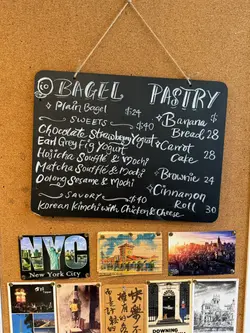 BAGEL
Plain Bagel $24
SWEETS $40
Chocolate Strawberry Yogurt
Earl Grey Fig Yogurt
Hojicha Soufflé & Mochi
Matcha Soufflé & Mochi
Oolong Sesame & Mochi
SAVORY $40
Korean Kimchi with Chicken & Cheese
PASTRY
Banana
Bread 28
Carrot
Cake 28
Brownie 24
Cinnamon
Roll 30
NYC
New York City
DOWNING